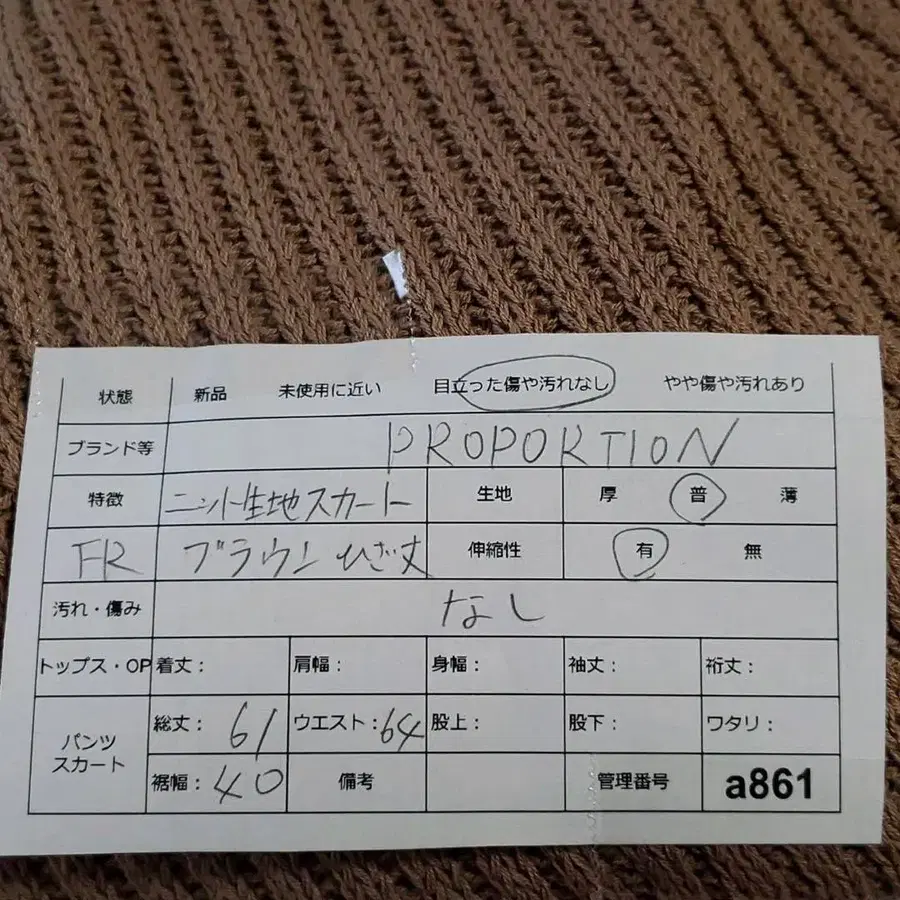 状態 新品 未使用に近い 目立った傷や汚れなし やや傷や汚れあり
ブランド等 PROPORTION
特徴 ニット生地スカート 生地 厚 普 薄
FR ブラウン ひざ丈 伸縮性 有 無
汚れ・傷み なし
トップス・OP 着丈: 肩幅: 身幅: 袖丈: 裄丈:
パンツ スカート 総丈: 61 ウエスト: 64 股上: 股下: ワタリ:
裾幅: 40 備考 管理番号 a861